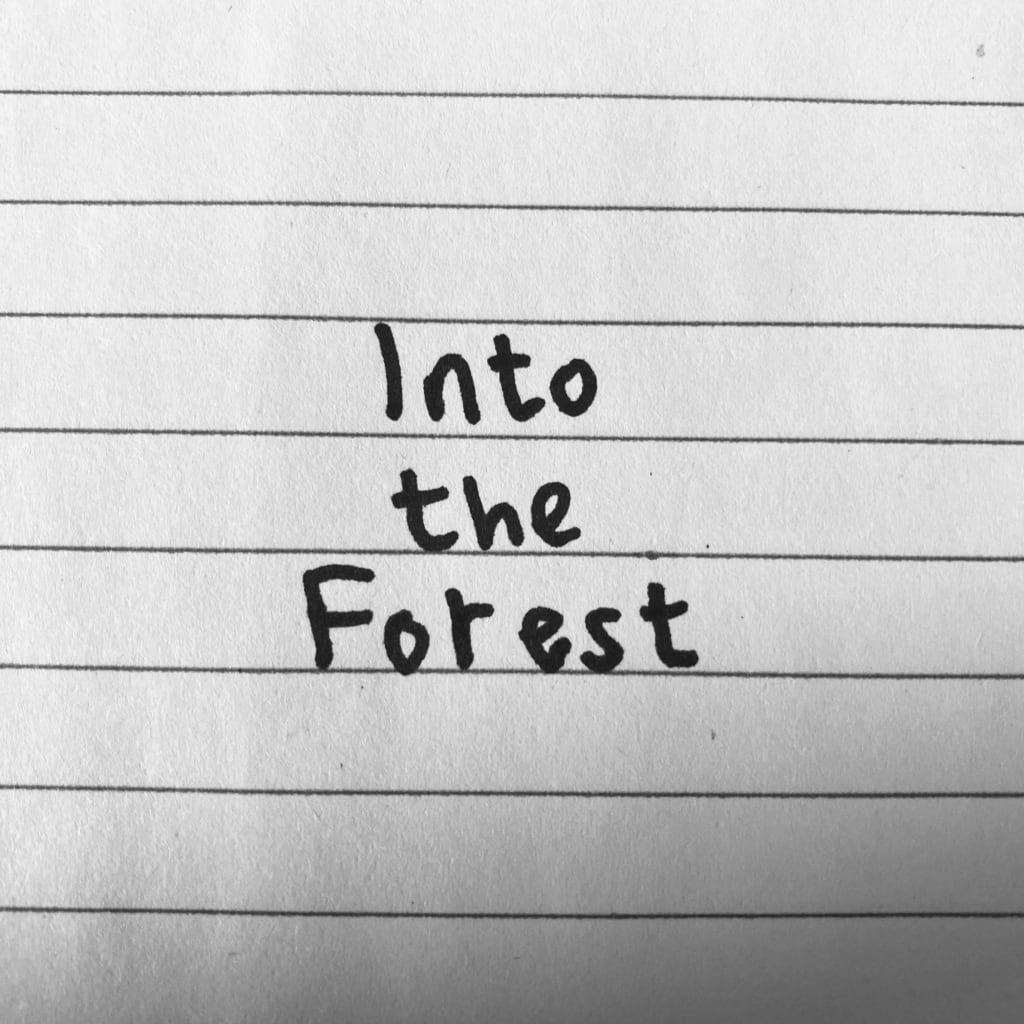 Into
the
Forest